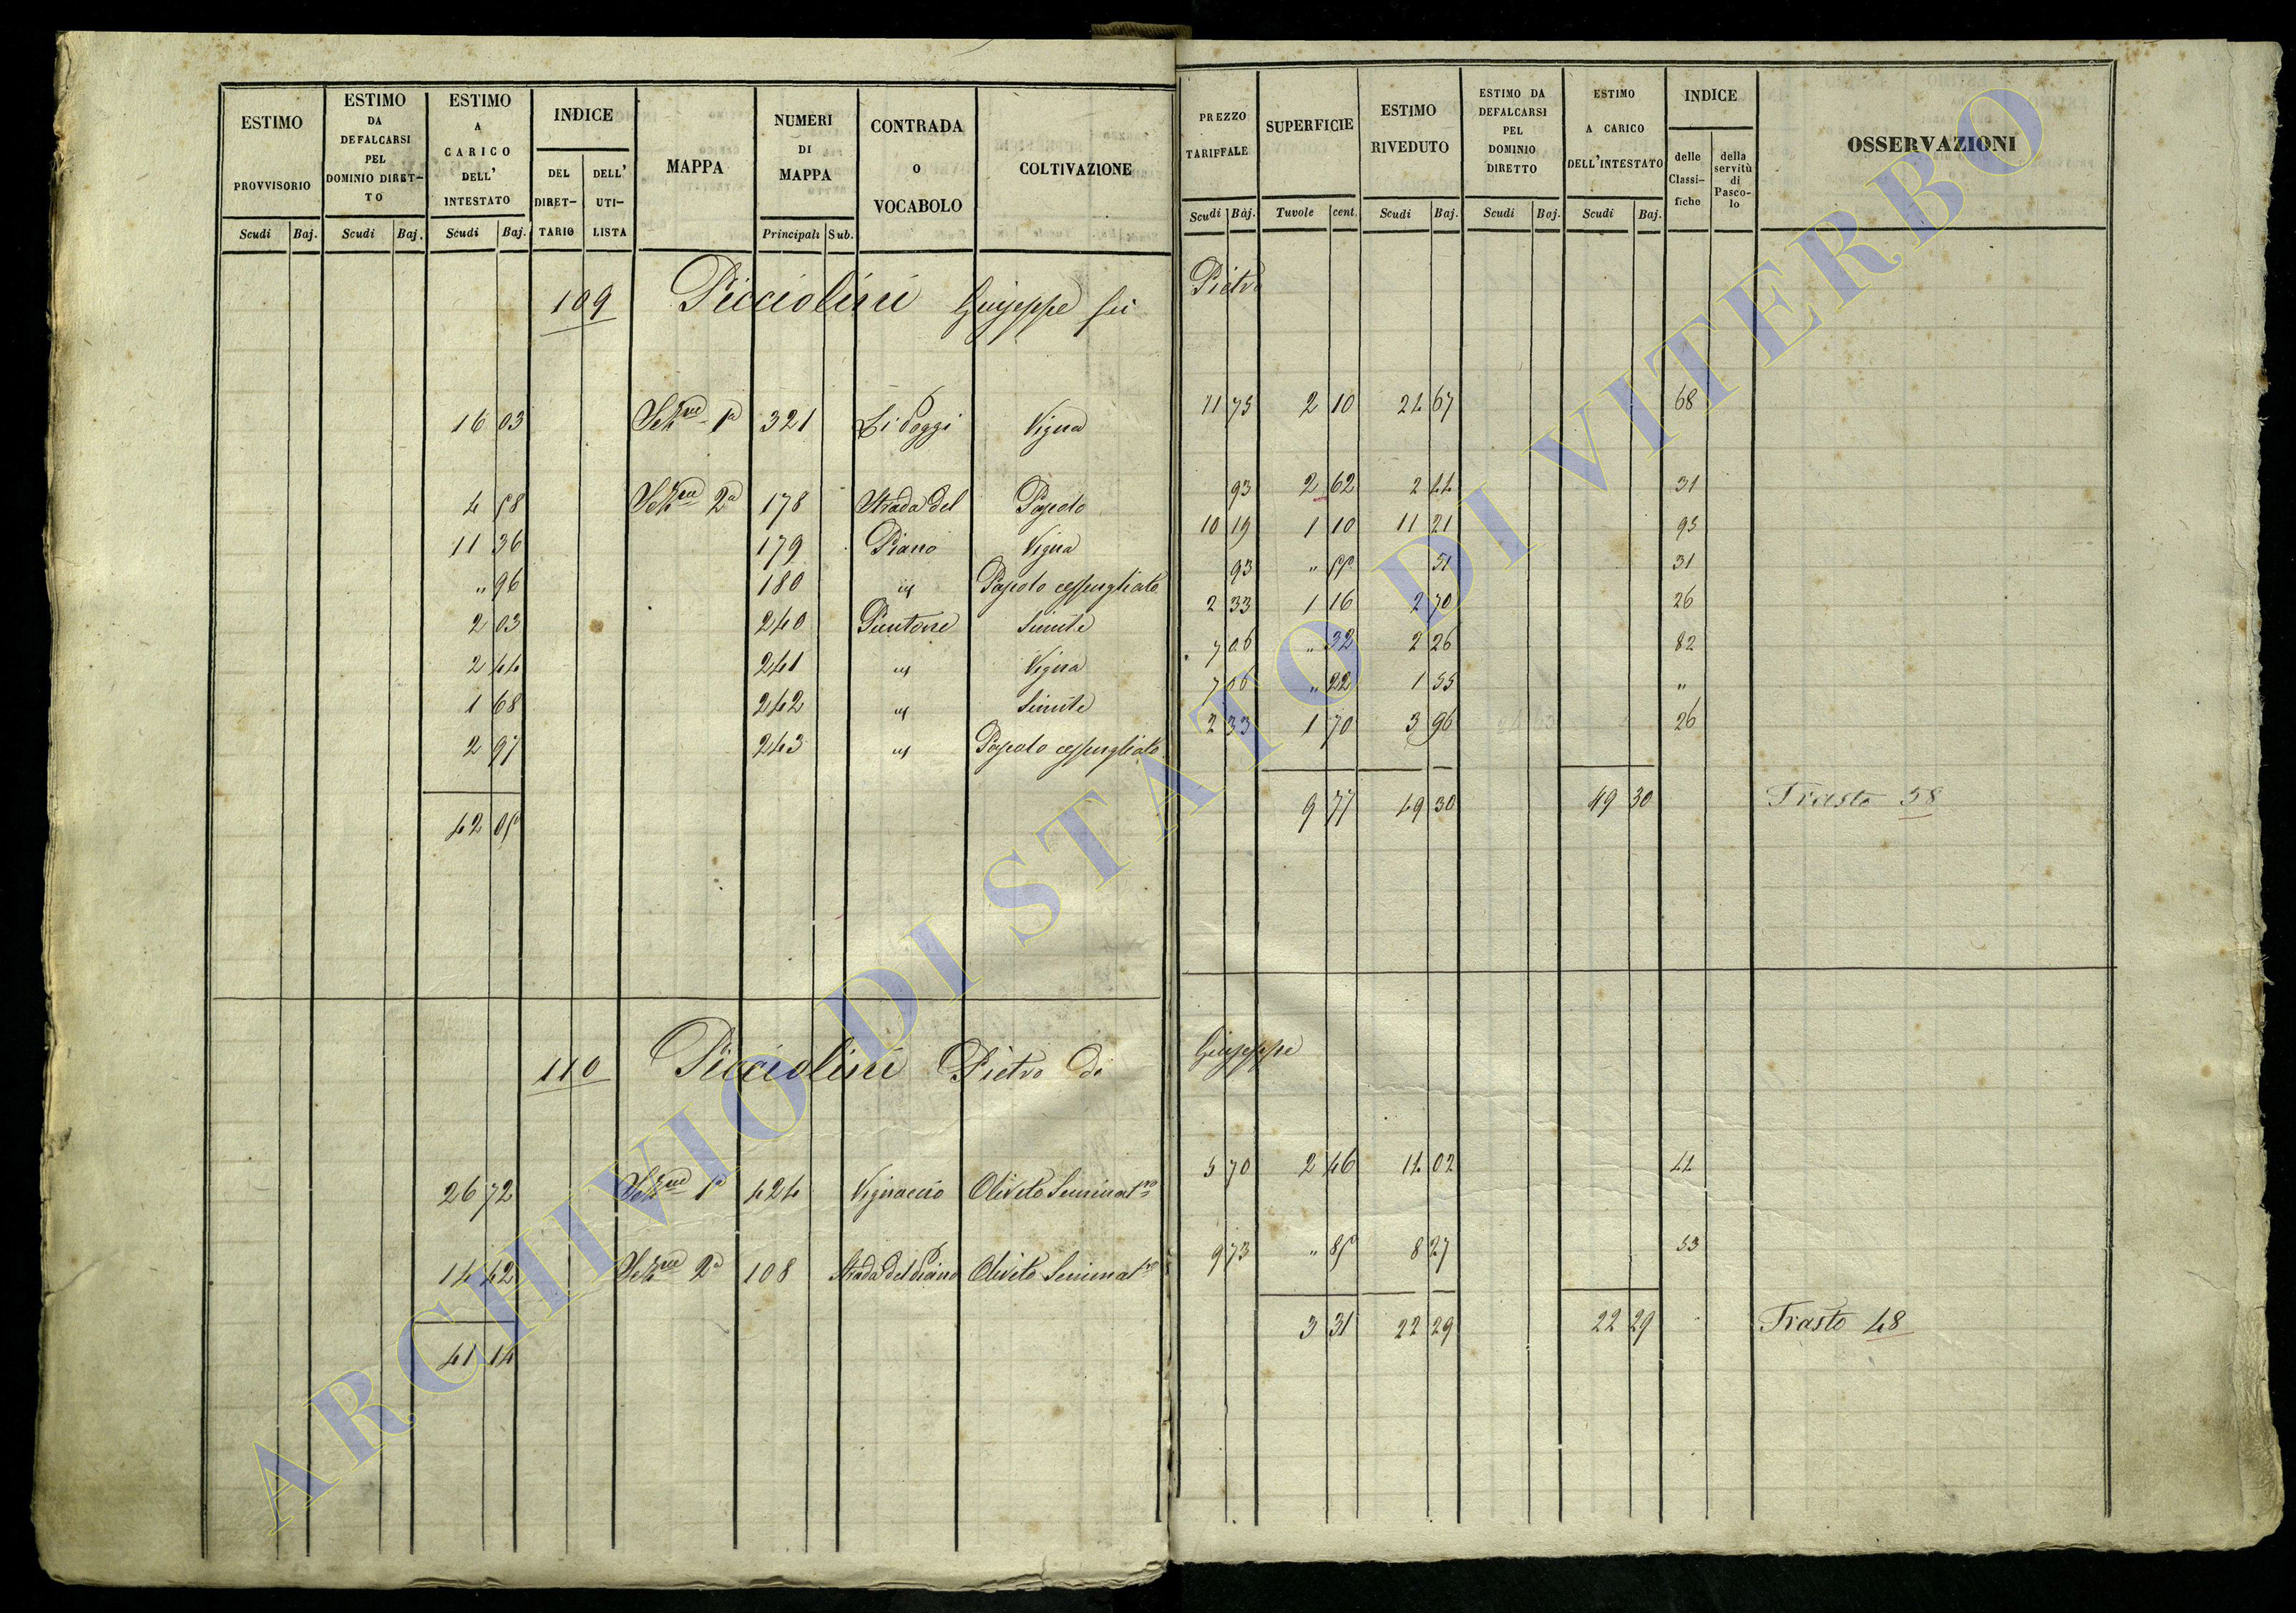 ESTIMO PROVVISORIO | ESTIMO DA DEFALCARSI PEL DOMINIO DIRET–TO | ESTIMO A CARICO DELL' INTESTATO | INDICE DEL DIRET–TARIO | DELL' UTI–LISTA | MAPPA | NUMERI DI MAPPA | CONTRADA O VOCABOLO | COLTIVAZIONE | PREZZO TARIFFALE | SUPERFICIE | ESTIMO RIVEDUTO | ESTIMO DA DEFALCARSI PEL DOMINIO DIRETTO | ESTIMO A CARICO DELL'INTESTATO | INDICE delle Classi–fiche | della servitù di Pasco–lo | OSSERVAZIONI
Scudi | Baj. | Scudi | Baj. | Scudi | Baj. | Principali | Sub. | Scudi | Baj. | Tavole | cent. | Scudi | Baj. | Scudi | Baj. | Scudi | Baj.
109 Picciolini Giuseppe fu Pietro
16 03 | Sezne 1a | 321 | Li Poggi | Vigna | 11 75 | 2 10 | 24 67 | 68
4 58 | Sezne 2a | 178 | Strada del | Pascolo | 93 | 2 62 | 2 44 | 31
11 36 | 179 | Piano | Vigna | 10 19 | 1 10 | 11 21 | 95
" 96 | 180 | Pascolo cespugliato | 93 | " 55 | 51 | 31
2 03 | 240 | Puntone | Simile | 2 33 | 1 16 | 2 70 | 26
2 44 | 241 | Vigna | 7 06 | " 32 | 2 26 | 82
1 68 | 242 | Simile | 7 06 | " 22 | 1 55 | "
2 97 | 243 | Pascolo cespugliato | 2 33 | 1 70 | 3 96 | 26
42 05 | 9 77 | 49 30 | 49 30 | Trasto 58
110 Picciolini Pietro di Giuseppe
26 72 | Sezne 1a | 424 | Vignaccio | Oliveto Seminatvo | 5 70 | 2 46 | 14 02 | 44
14 42 | Sezne 2a | 108 | Strada del Piano | Oliveto Seminatvo | 9 73 | " 85 | 8 27 | 53
41 14 | 3 31 | 22 29 | 22 29 | Trasto 48
ARCHIVIO DI STATO DI VITERBO